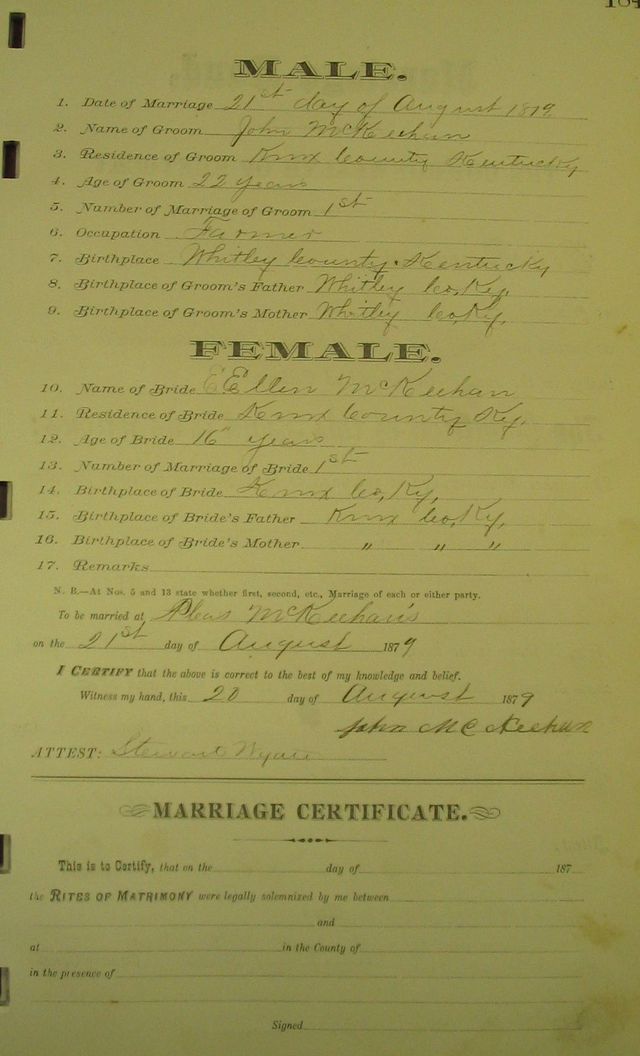 184
MALE.
1. Date of Marriage 21st day of August 1879
2. Name of Groom John McKeehan
3. Residence of Groom Knox County Kentucky
4. Age of Groom 22 years
5. Number of Marriage of Groom 1st
6. Occupation Farmer
7. Birthplace Whitley County Kentucky
8. Birthplace of Groom's Father Whitley Co, Ky,
9. Birthplace of Groom's Mother Whitley Co, Ky,
FEMALE.
10. Name of Bride Ellen McKeehan
11. Residence of Bride Knox County Ky,
12. Age of Bride 16 years
13. Number of Marriage of Bride 1st
14. Birthplace of Bride Knox Co, Ky,
15. Birthplace of Bride's Father Knox Co, Ky,
16. Birthplace of Bride's Mother " " "
17. Remarks
N. B.—At Nos. 5 and 13 state whether first, second, etc., Marriage of each or either party.
To be married at Pleas McKeehan's
on the 21st day of August 1879
I CERTIFY that the above is correct to the best of my knowledge and belief.
Witness my hand, this 20 day of August 1879
John McKeehan
ATTEST: Stewart
MARRIAGE CERTIFICATE.
This is to Certify, that on the day of 187
the RITES OF MATRIMONY were legally solemnized by me between
and
at in the County of
in the presence of
Signed